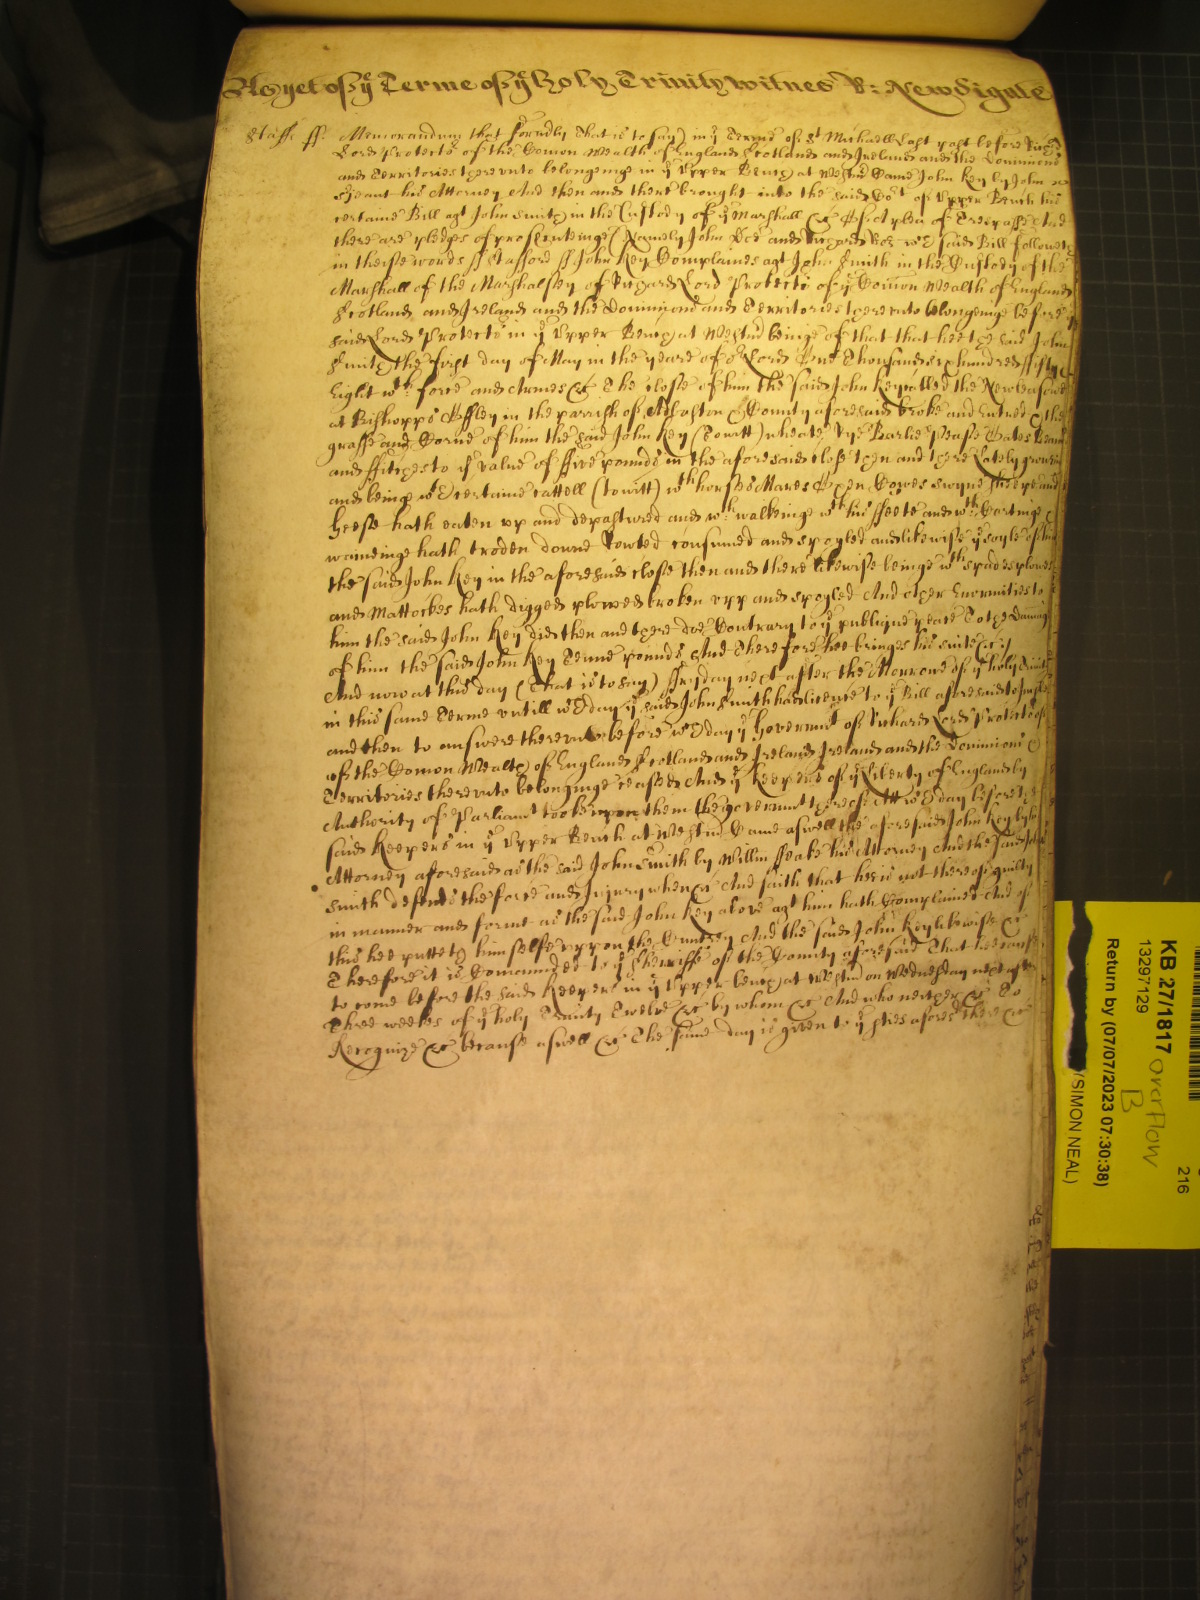 As yet of ye Terme of ye holy Trinity witnes R: Newdigate
Staff: ff Memorandum that fformly That is to say) in ye Terme of St Michaell Last past before Rich
Lord Protector of the Comon Wealth of England Scotland and Ireland and the Dominions
and Territories thereunto belonginge in ye Upper Bench at Westmr Came John Key by John
his Attorney And then and there brought into the said Cort of Upper Bench his
certaine Bill agt John Smith in the Custody of ye Marshall &c of a plea of Trespasse And
there are pledges of prosecuteinge (Namely John Doe and Richard Roe wch said Bill followeth
in theise words ff Stafford ff John Key Complaines agt John Smith in the Custody of the
Marshall of the Marshalsey of Richard Lord Protector of ye Comon Wealth of England
Scotland and Ireland and the Dominions and Territories thereunto belonginge before ye
said Lord Protector in ye Upper Bench at Westmr beinge of that that hee the said John
Smith the first day of May in the yeare of or Lord One Thousand six hundred fifty
Eight wth force and Armes &c The close of him the said John Key called the New leasowe
at Bishopps Offley in the parrish of Adbaston County aforesaid broke and Entred & the
grasse and Corne of him the said John Key (towitt) wheate Rye Barlie Pease Oates Beanes
and ffitches to ye value of ffive pounds in the aforesaid close then and there lately groweinge
and being wth certaine cattell (towitt) wth horses Mares Oxen Cowes swyne sheepe and
Geese hath eaten up and depastured and wth walkeinge wth his ffeete and wth Carting
waineinge hath troden downe Rowted consumed and spoyled and likewise ye soyle of him
the said John Key in the aforesaid close then and there likewise beinge wth spades plowes
and Mattockes hath digged plowed broken upp and spoyled And other Enormities to
him the said John Key did then and there doe Contrary to ye publique peace To the Damage
of him the said John Key Tenne pounds And Therefore hee bringes his suite &c
And now at this day (That is to say) ffryday next after the Morrowe of ye holy Trinity
in this same Terme untill wch day ye said John Smith had licence to ye Bill aforesaid to Imparle
and then to answere thereunto before wch day ye Governmt of Richard Lord Protector
of the Comon Wealth of England Scotland and Ireland Ireland and the Dominions &
Territories thereunto belonginge ceased And ye Keepers of ye Liberty of England by
Authority of Parliamt tooke upon them the governmt thereof Att wch day before the
said Keepers in ye Upper Bench at Westmr Came aswell the aforesaid John Key by his
Attorney aforesaid as the said John Smith by Willm ffeake his Attorney And the said John
Smith defends the force and Injury when &c And saith that hee is not thereof guilty
in manner and forme as the said John Key above agt him hath Complained And of
this hee putteth himselfe uppon the Cuntrey And the said John Key likewise &c
Therefore it is Comannded to ye Sherriffe of the County aforesaid That hee cause
to come before the said Keepers in ye Upper bench at Westmr on Wednesday next after
Three weekes of ye holy Trinity Twelve &c by whom &c And who neither &c To
Recognize &c because aswell &c The same day is given to ye pties aforesd there &c
KB 27/1817
13297129
overflow
B
216
Return by (07/07/2023 07:30:38)
(SIMON NEAL)